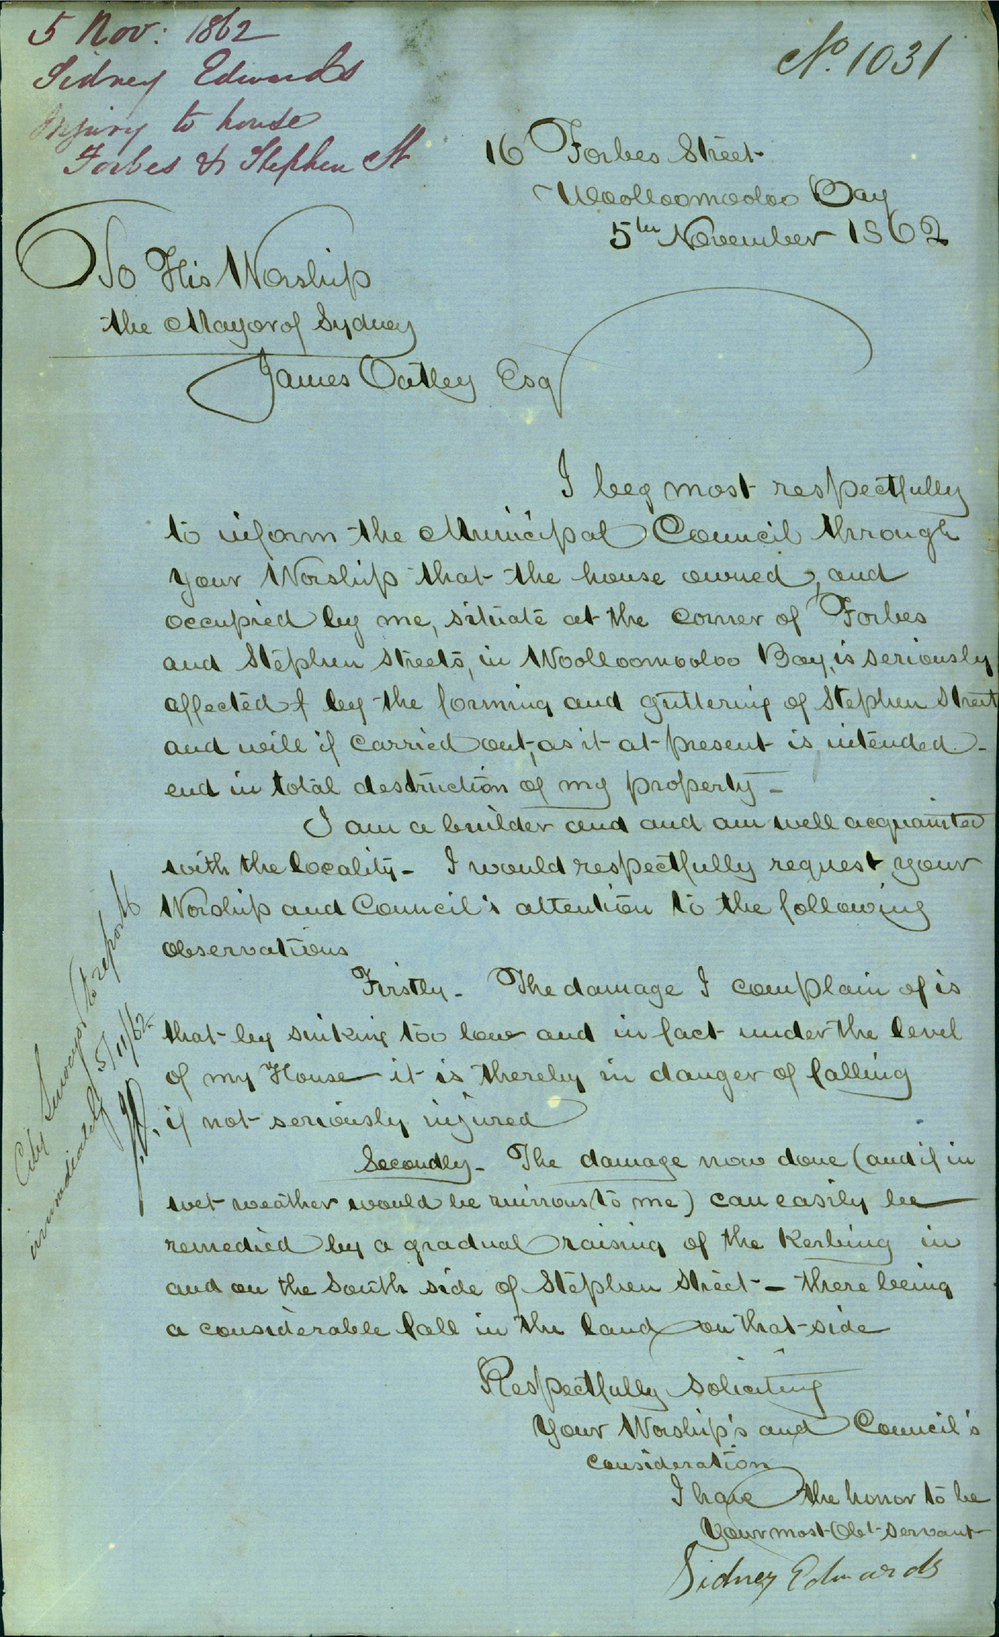 5 Nov: 1862
Sidney Edwards
Injury to house
Forbes & Stephen St
No. 1031
16 Forbes Street
Woolloomooloo Bay
5th November 1862
To His Worship
the Mayor of Sydney
James Oatley Esq
I beg most respectfully
to inform the Municipal Council through
your Worship that the house owned, and
occupied by me, situate at the corner of Forbes
and Stephen streets, in Woolloomooloo Bay, is seriously
affected by the forming and guttering of Stephen Street
and will if carried out, as it at present is intended -
end in total destruction of my property -
I am a builder and and am well acquainted
with the locality - I would respectfully request your
Worship and Council's attention to the following
observations
Firstly - The damage I complain of is
that by sinking too low and in fact under the level
of my House it is thereby in danger of falling
if not seriously injured
Secondly - The damage now done (and if in
wet weather would be ruinous to me) can easily be
remedied by a gradual raising of the Kerbing in
and on the South side of Stephen Street - there being
a considerable fall in the land on that side
Respectfully soliciting
Your Worship's and Council's
consideration
I have the honor to be
Your most Obt servant
Sidney Edwards
City Surveyor to report
immediately 5/11/62
J.O.